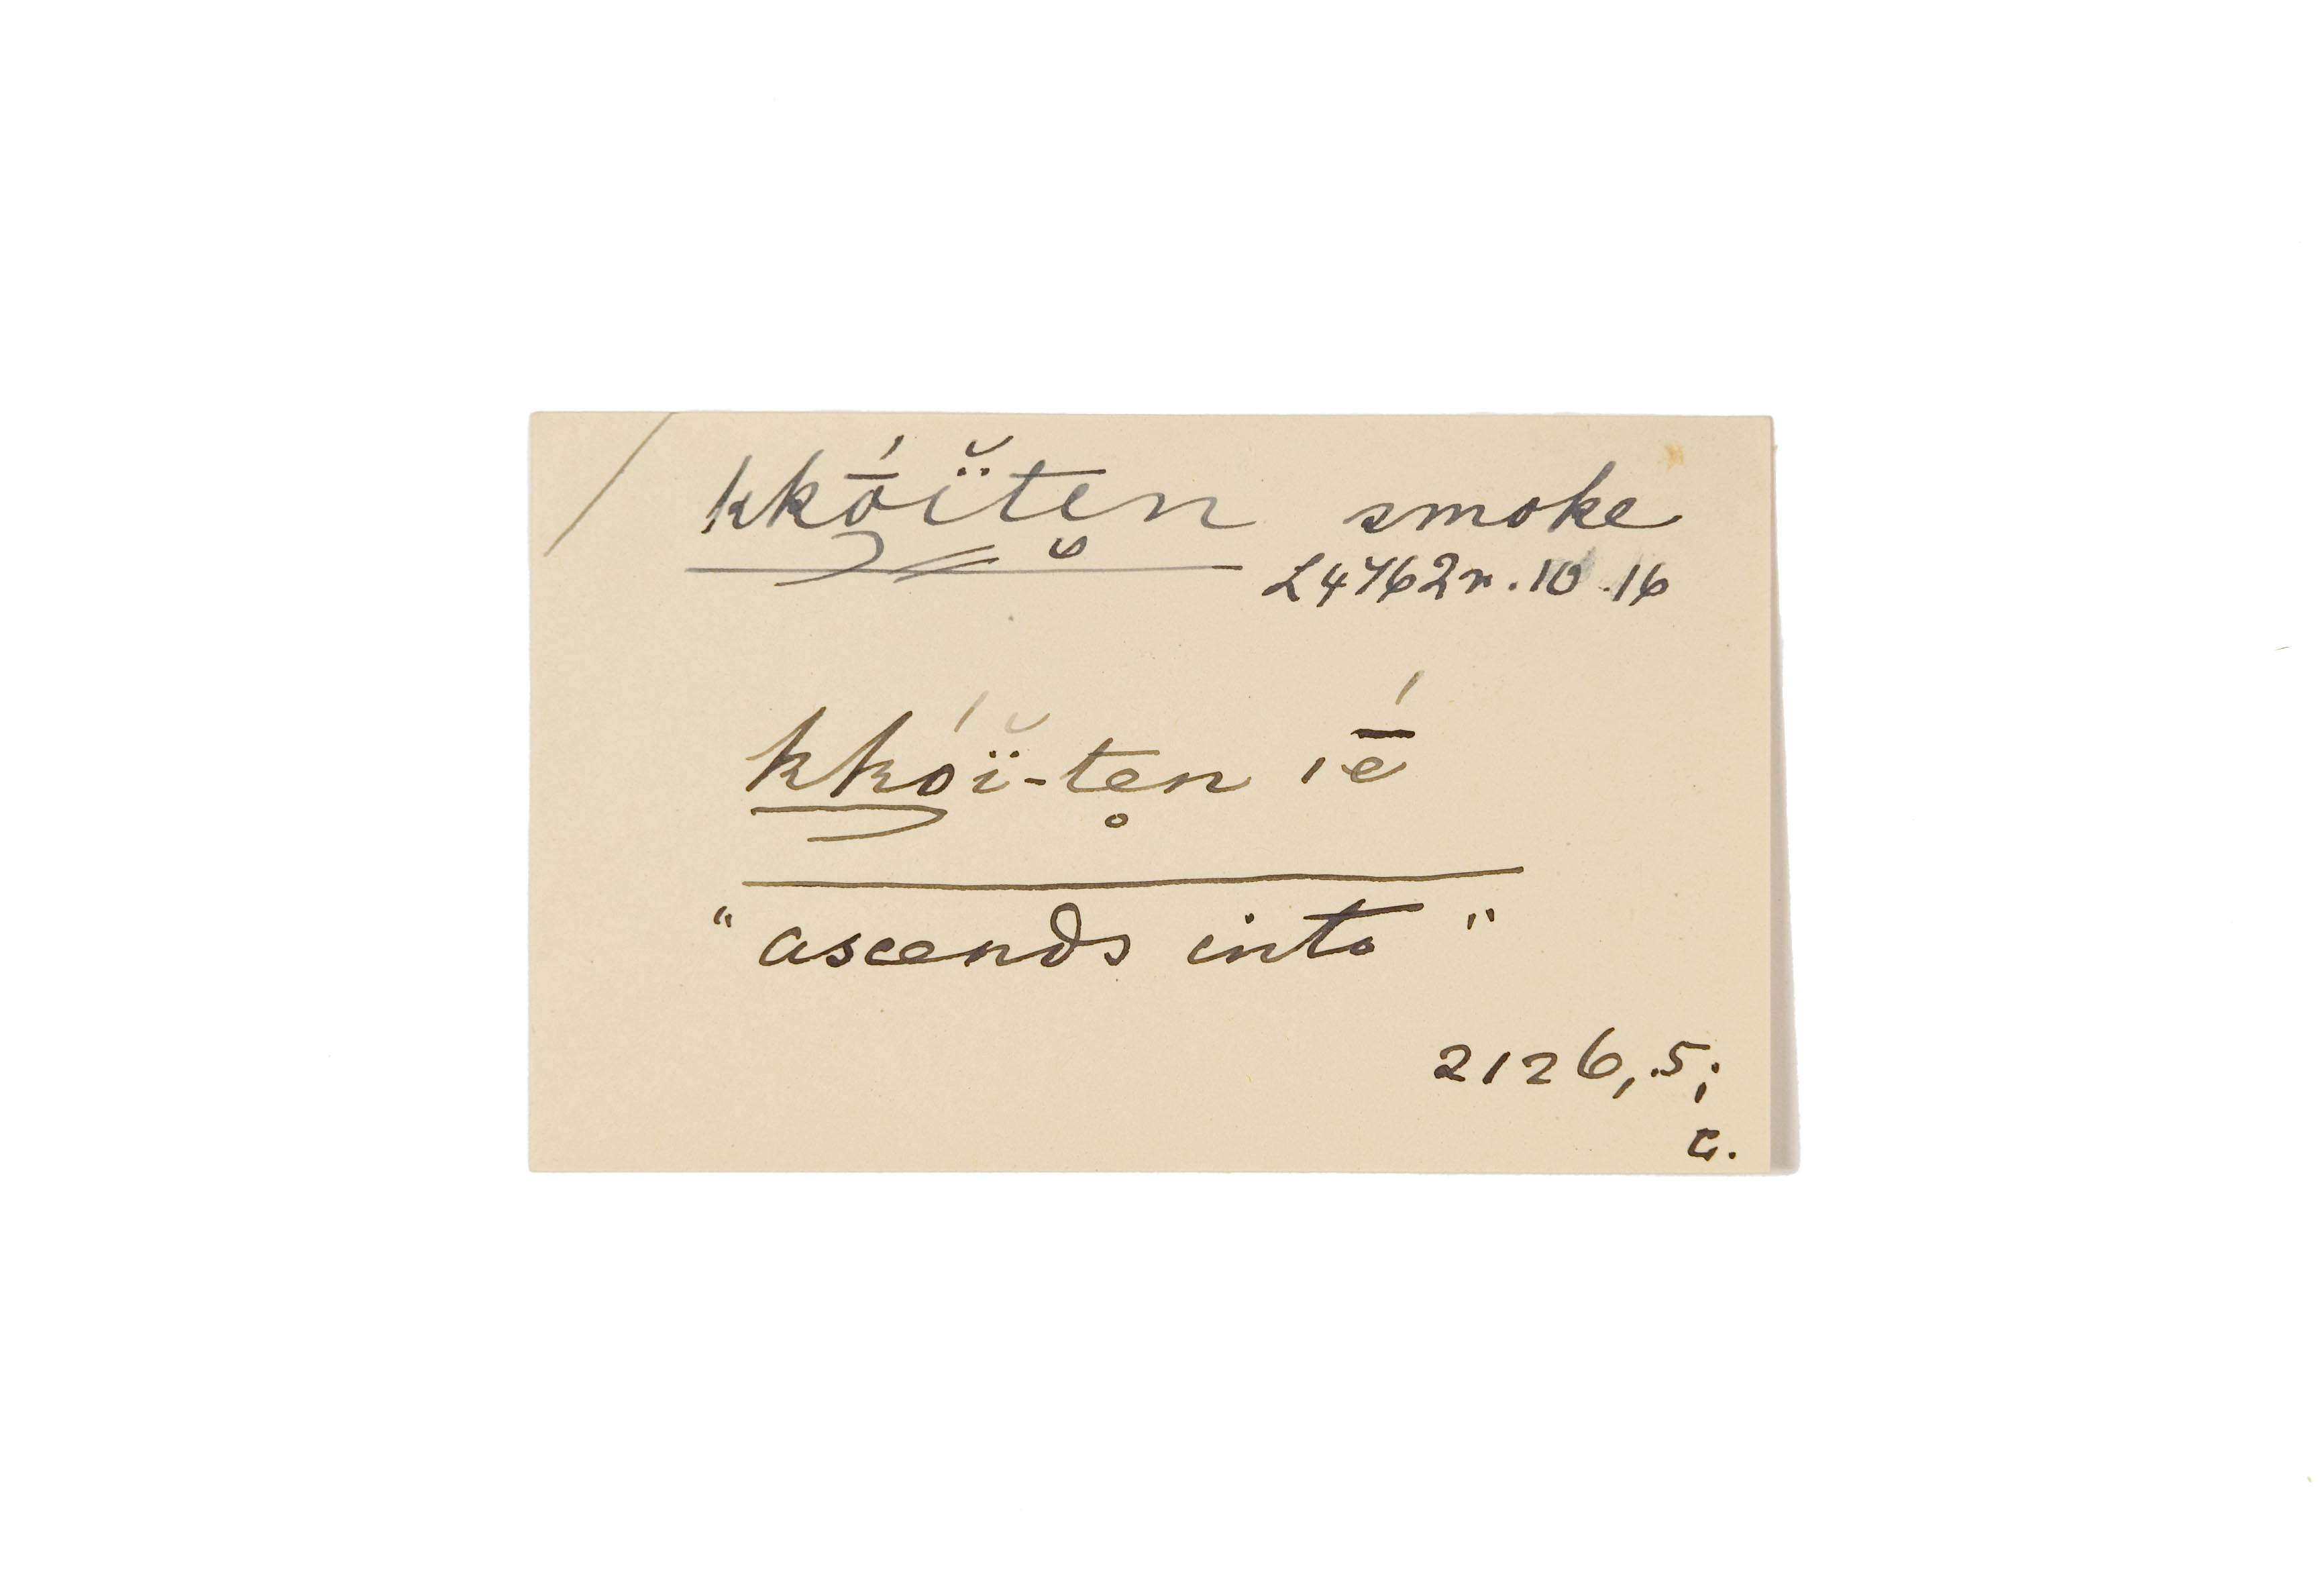 kkṓï̆tẹn smoke
L4762r.10.16
kkóï̆-tẹn ıḗ
"ascends into"
2126,5;
C.